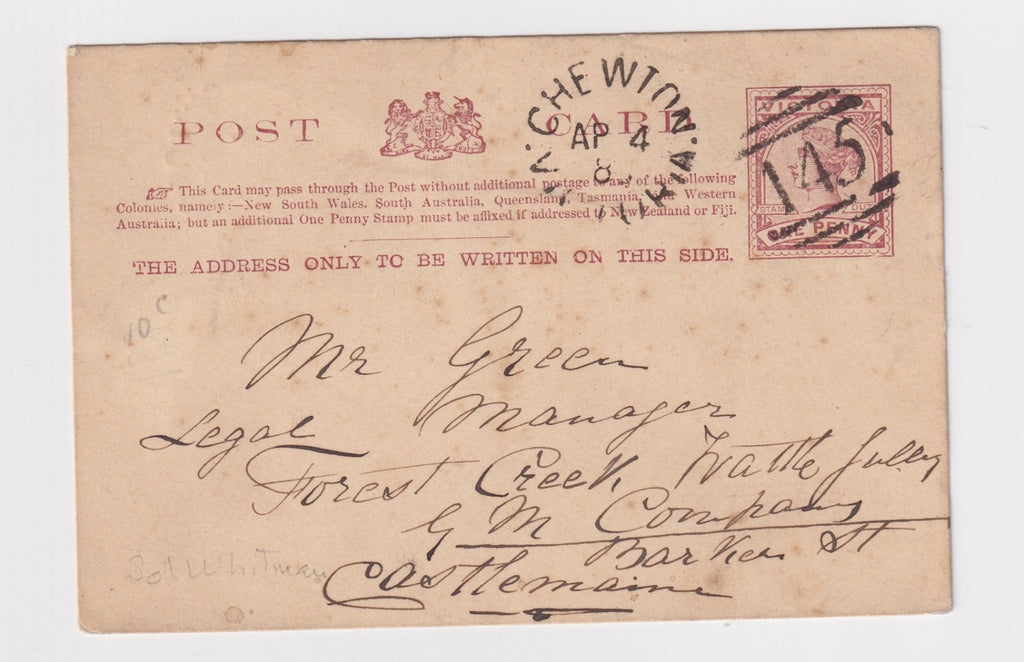 POST CARD
CHEWTON
AP 4
8
VICTORIA
145
STAMP DUTY
ONE PENNY
This Card may pass through the Post without additional postage to any of the following
Colonies, namely:—New South Wales, South Australia, Queensland, Tasmania, Western
Australia; but an additional One Penny Stamp must be affixed if addressed to New Zealand or Fiji.
THE ADDRESS ONLY TO BE WRITTEN ON THIS SIDE.
10c
Mr Green
Legal Manager
Forest Creek Wattle Gully
G M Company
Barker St
Castlemaine
Whitman